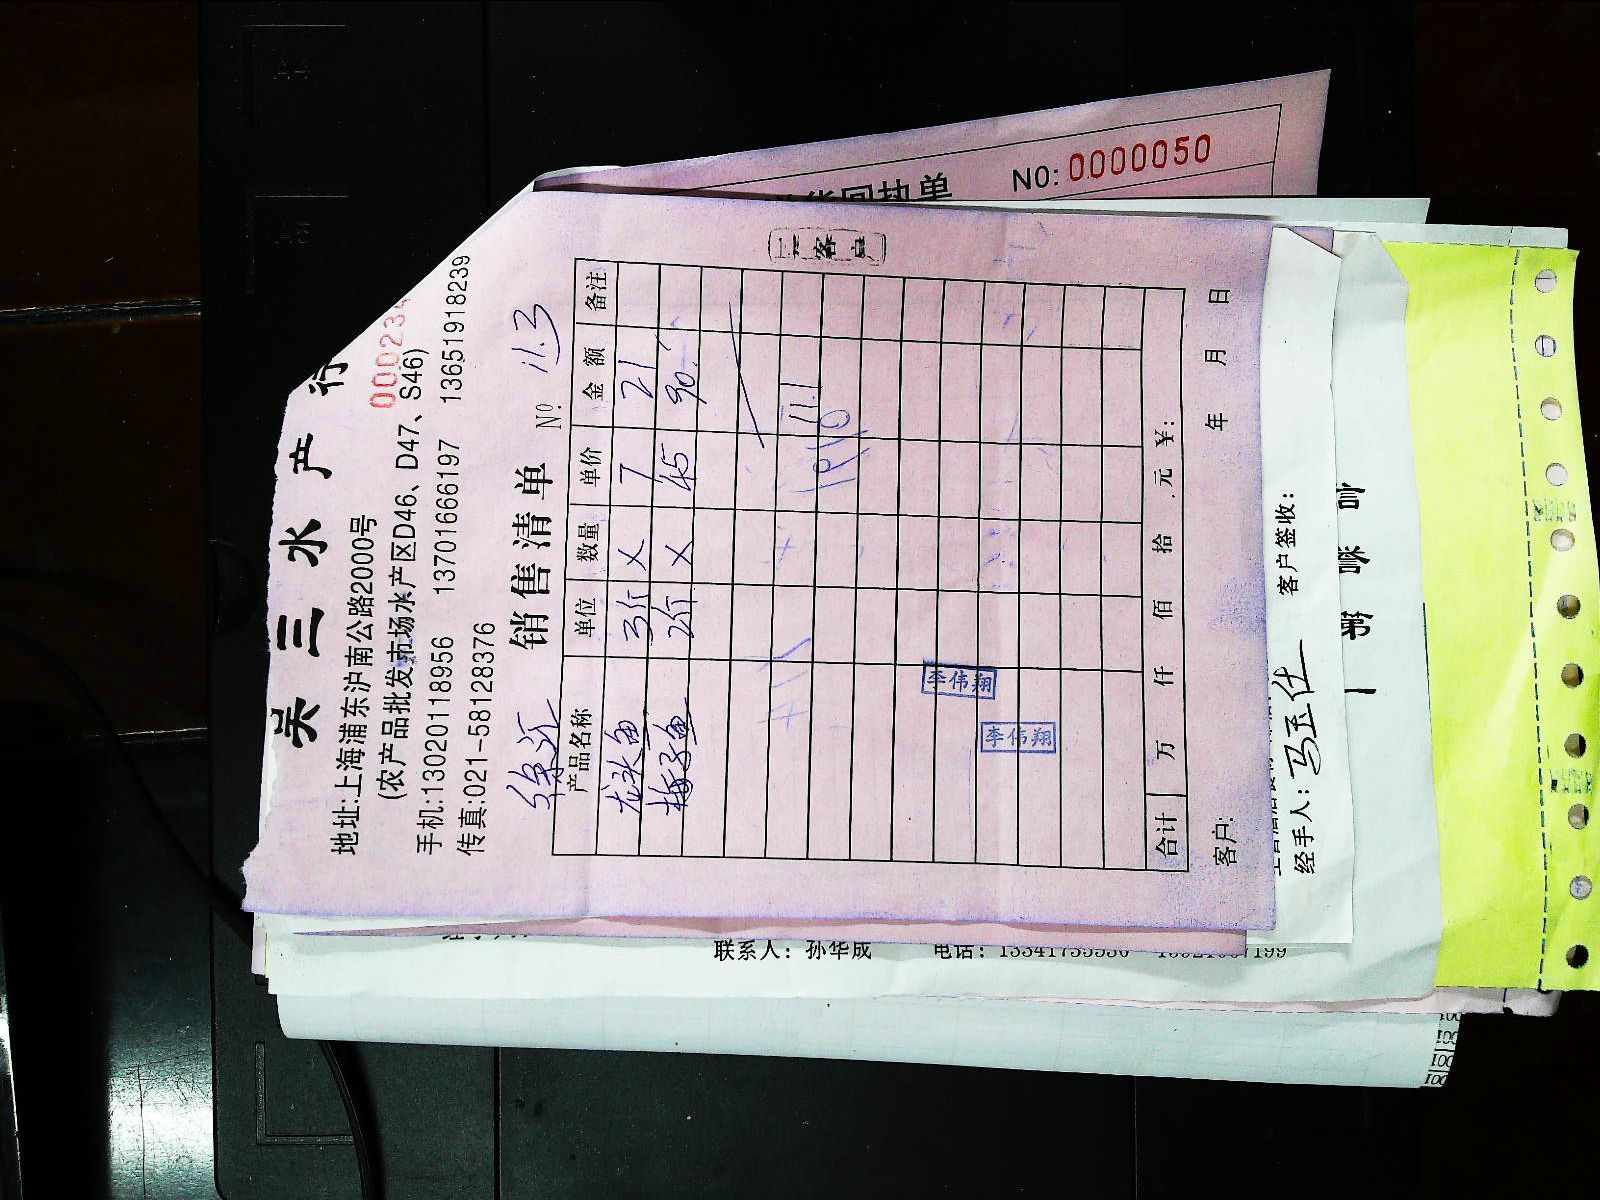 NO: 0000050
货回执单
吴三水产行
000234
地址:上海浦东沪南公路2000号
(农产品批发市场水产区D46、D47、S46)
手机:13020118956 13701666197 13651918239
传真:021-58128376
销售清单 Nº: 11.3
产品名称 单位 数量 单价 金额 备注
龙头鱼 3斤 × 7 21
梅子鱼 2斤 × 45 90.
111
李伟翔
李伟翔
合计 万 仟 佰 拾 元 ¥:
客户: 年 月 日
客户签收:
经手人: 马玉仕
联系人: 孙华成 电话: